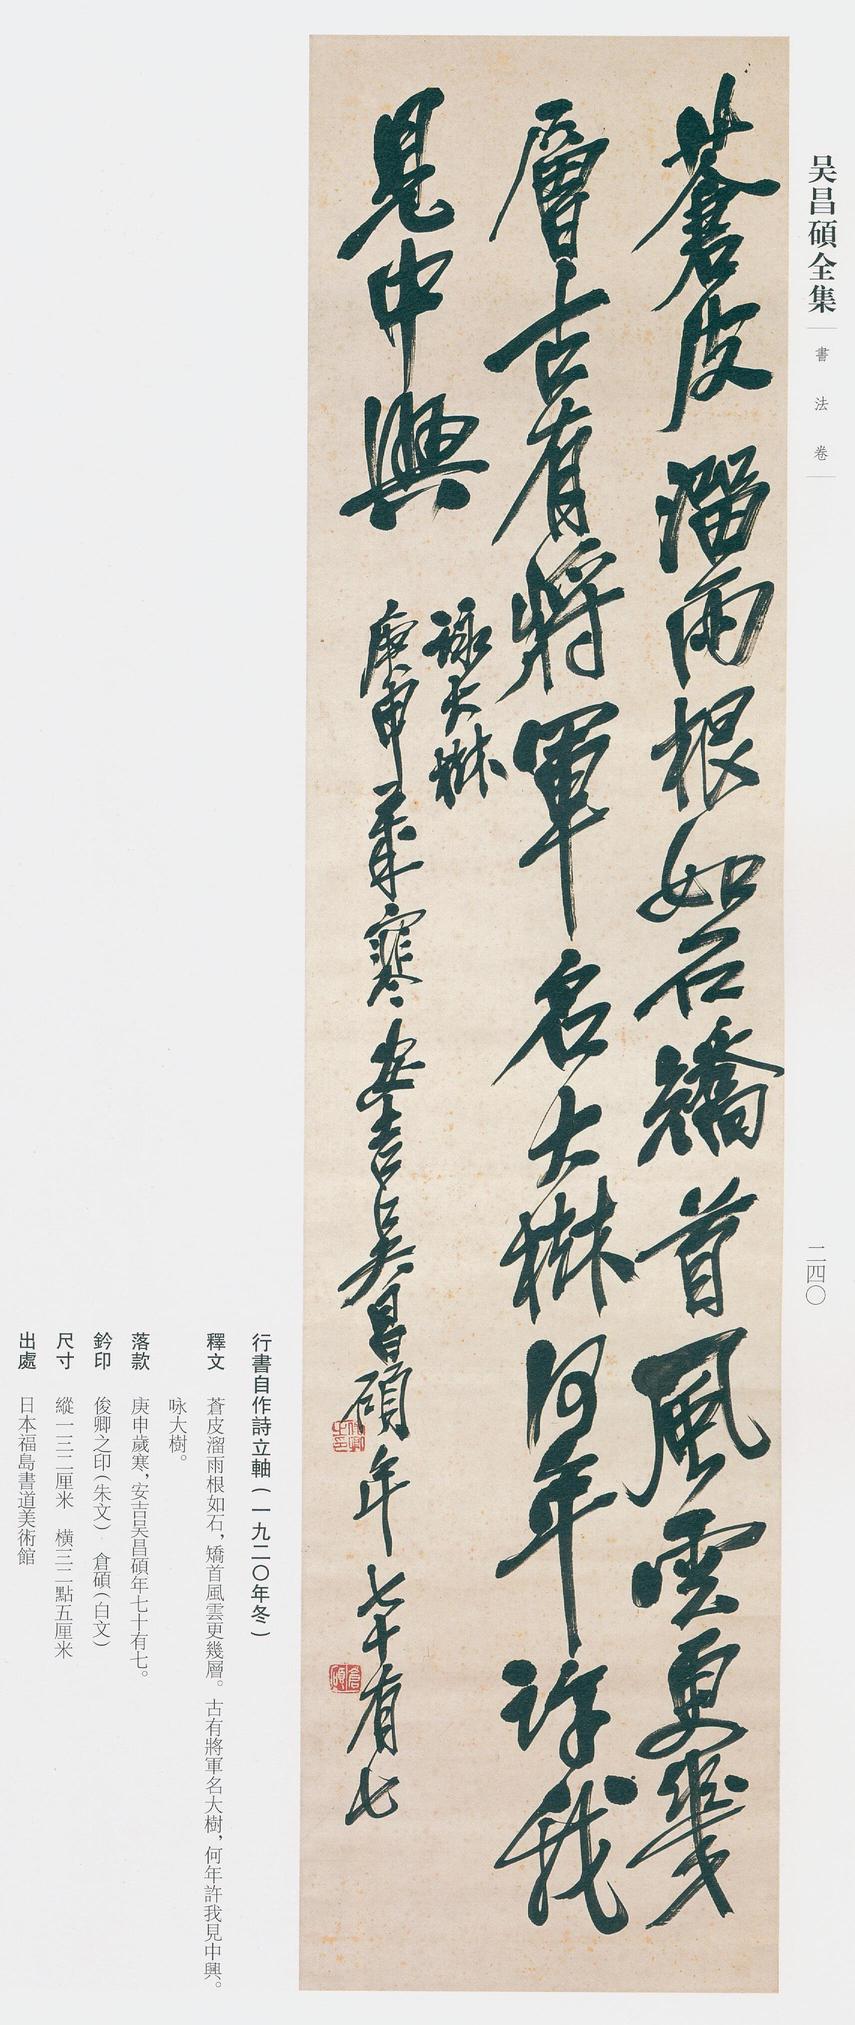 吴昌碩全集
書法卷
二四〇
蒼皮溜雨根如石矯首風雲更幾
層古有將軍名大樹何年許我
見中興
詠大樹
庚申歲寒安吉吴昌碩年七十有七
俊卿之印
倉碩
行書自作詩立軸(一九二〇年冬)
釋文 蒼皮溜雨根如石,矯首風雲更幾層。古有將軍名大樹,何年許我見中興。
咏大樹。
落款 庚申歲寒,安吉吴昌碩年七十有七。
鈐印 俊卿之印(朱文) 倉碩(白文)
尺寸 縱一三二厘米 橫三二點五厘米
出處 日本福島書道美術館